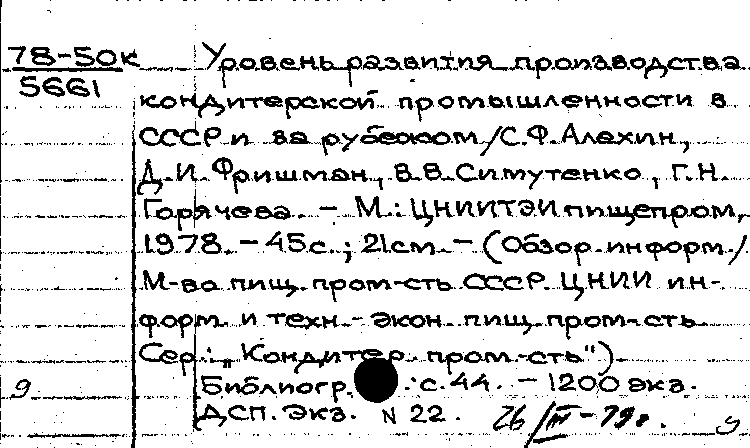 78-50к Уровень развития производства
5661
кондитерской промышленности в
СССР и за рубежом/С.Ф.Алехин,
Д.И.Фришман, В.В.Симутенко, Г.Н.
Горячева. - М.: ЦНИИТЭИпищепром,
1978. - 45с.; 21см. - (Обзор.информ./
М-во пищ. пром-сть СССР. ЦНИИ ин-
форм. и техн.-экон. пищ. пром-сть
Сер.: „Кондитер. пром.-сть").
9 Библиогр.: с.44. - 1200 экз.
ДСП. Экз. N 22. 26/III-79г. 9